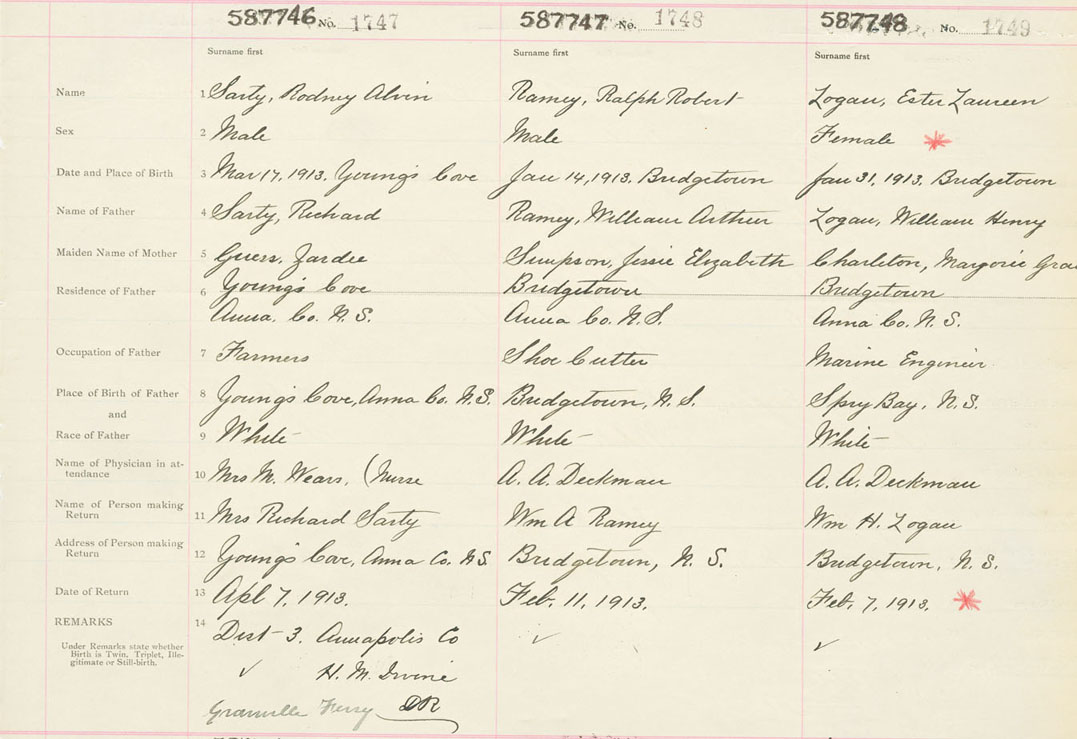 587746 No. 1747 587747 No. 1748 587748 No. 1749
Surname first Surname first Surname first
Name 1 Sarty, Rodney Alvin Ramey, Ralph Robert Logan, Ester Laureen
Sex 2 Male Male Female
Date and Place of Birth 3 Mar 17, 1913. Young's Cove Jan 14, 1913. Bridgetown Jan 31, 1913. Bridgetown
Name of Father 4 Sarty, Richard Ramey, William Arthur Logan, William Henry
Maiden Name of Mother 5 Simpson, Jessie Elizabeth Charleton, Marjorie Grac
Residence of Father 6 Young's Cove Bridgetown Bridgetown
Anna. Co. N.S. Anna Co. N.S. Anna Co. N.S.
Occupation of Father 7 Farmers Shoe Cutter Marine Engineir
Place of Birth of Father 8 Young's Cove, Anna Co. N.S. Bridgetown, N.S. Spry Bay, N.S.
and
Race of Father 9 White White White
Name of Physician in at-
tendance 10 Mrs M. Wears, (Nurse A. A. Deckman A. A. Deckman
Name of Person making
Return 11 Mrs Richard Sarty Wm A Ramey Wm H. Logan
Address of Person making
Return 12 Young's Cove, Anna Co. N.S. Bridgetown, N.S. Bridgetown, N.S.
Date of Return 13 Apl 7, 1913. Feb. 11, 1913. Feb. 7, 1913.
REMARKS 14 Dist 3. Annapolis Co
Under Remarks state whether
Birth is Twin, Triplet, Ille-
gitimate or Still-birth.
H. M. Irvine
Granville Ferry DR